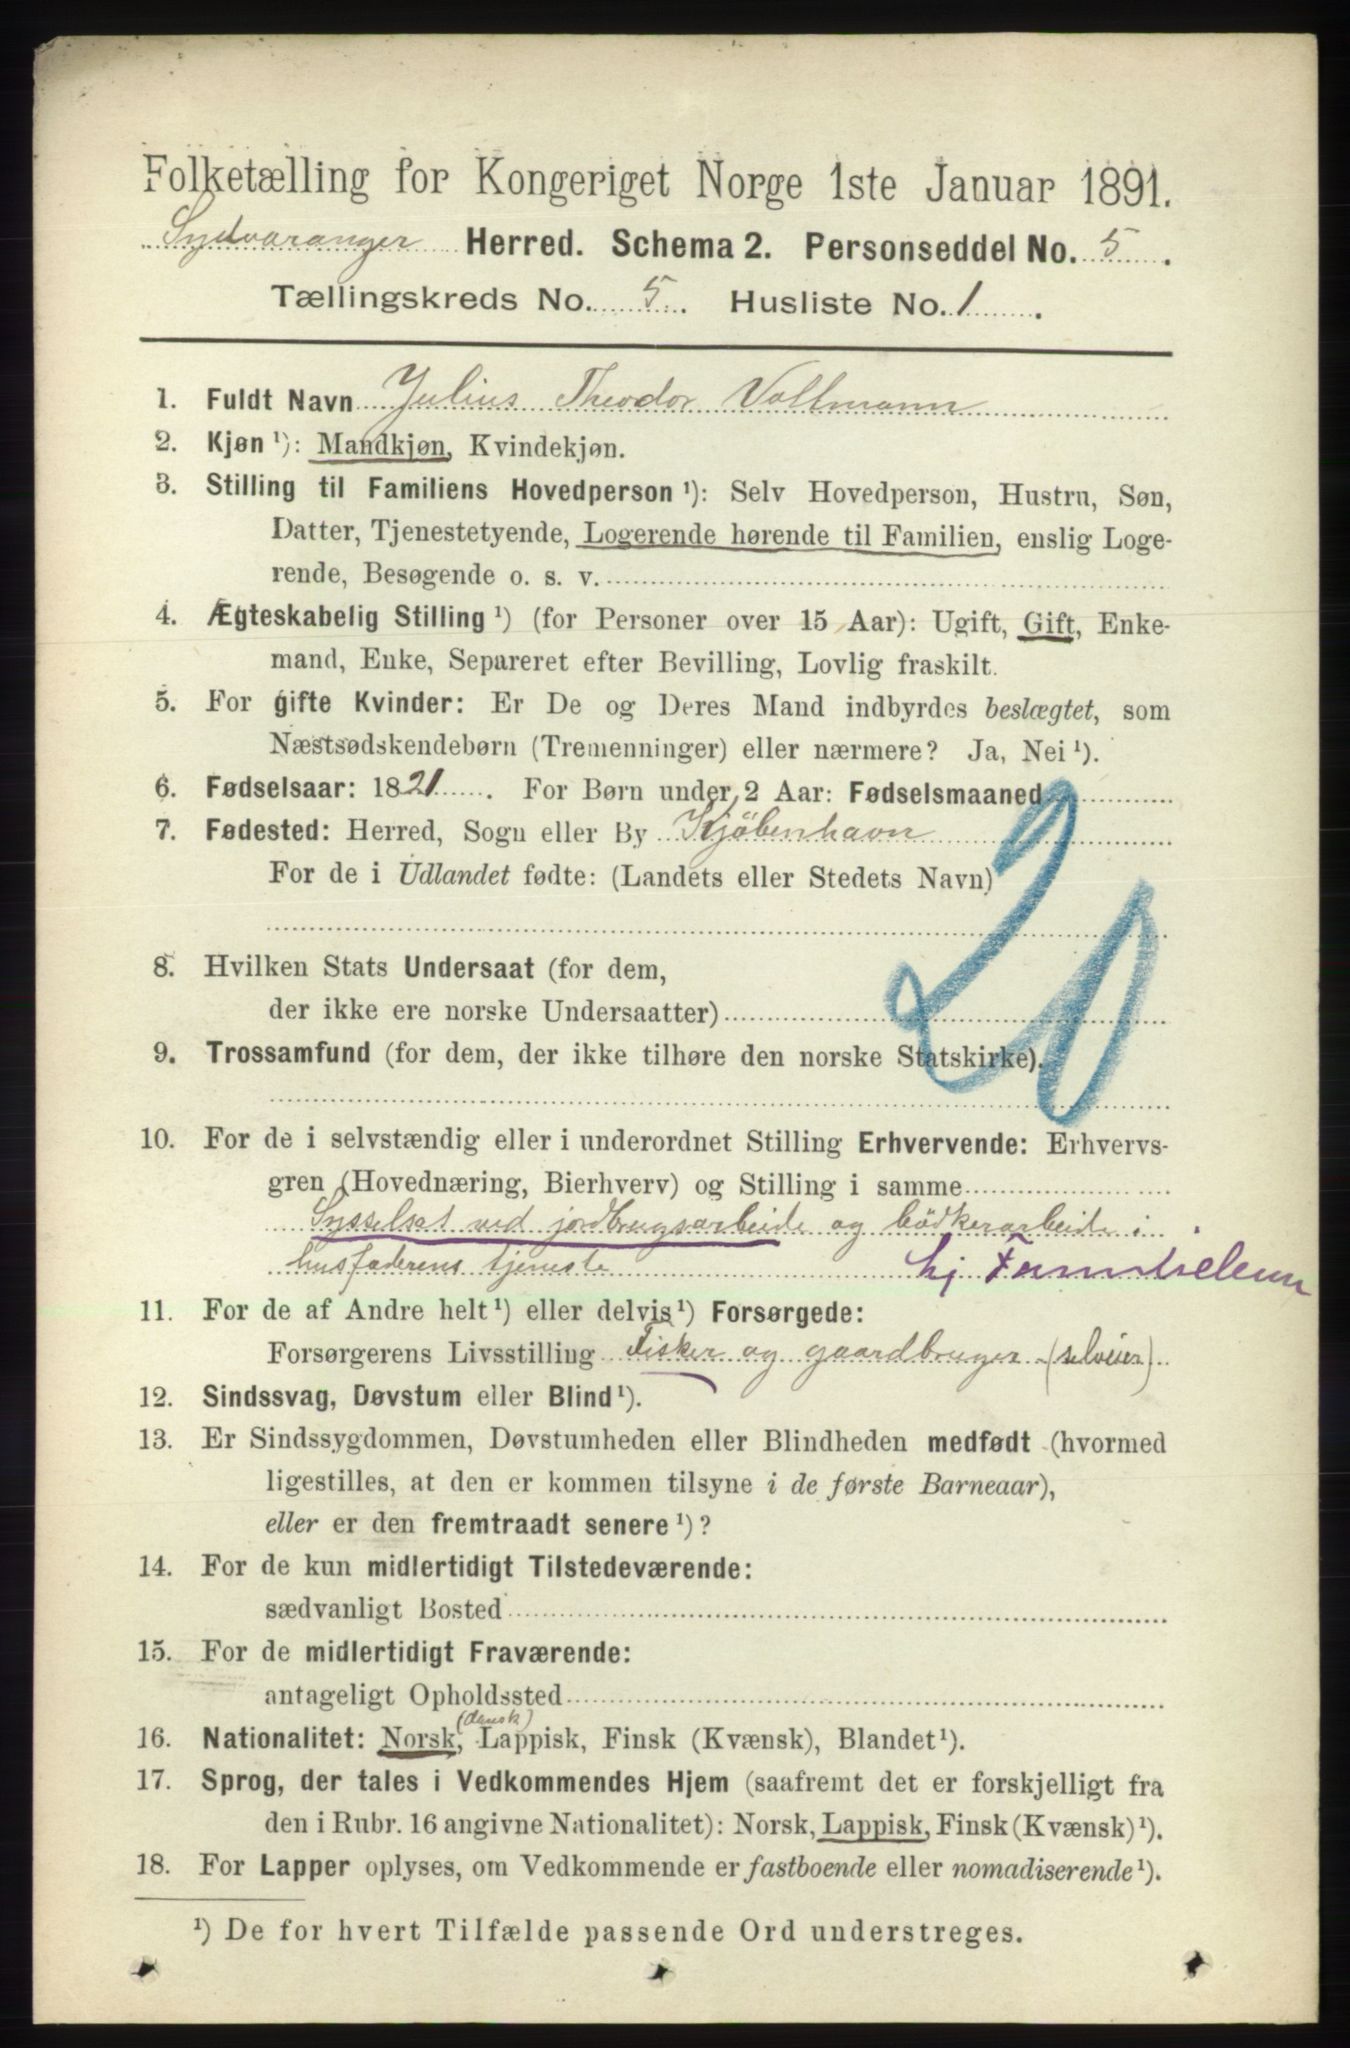 Folketælling for Kongeriget Norge 1ste Januar 1891.
Sydvaranger Herred. Schema 2. Personseddel No. 5.
Tællingskreds No. 5. Husliste No. 1.
1. Fuldt Navn Julius Theodor Vollmann
2. Kjøn ¹): Mandkjøn, Kvindekjøn.
3. Stilling til Familiens Hovedperson ¹): Selv Hovedperson, Hustru, Søn,
Datter, Tjenestetyende, Logerende hørende til Familien, enslig Loge-
rende, Besøgende o. s. v.
4. Ægteskabelig Stilling ¹) (for Personer over 15 Aar): Ugift, Gift, Enke-
mand, Enke, Separeret efter Bevilling, Lovlig fraskilt.
5. For gifte Kvinder: Er De og Deres Mand indbyrdes beslægtet, som
Næstsødskendebørn (Tremenninger) eller nærmere? Ja, Nei ¹).
6. Fødselsaar: 1821. For Børn under 2 Aar: Fødselsmaaned
7. Fødested: Herred, Sogn eller By Kjöbenhavn
For de i Udlandet fødte: (Landets eller Stedets Navn)
20
8. Hvilken Stats Undersaat (for dem,
der ikke ere norske Undersaatter)
9. Trossamfund (for dem, der ikke tilhøre den norske Statskirke).
10. For de i selvstændig eller i underordnet Stilling Erhvervende: Erhvervs-
gren (Hovednæring, Bierhverv) og Stilling i samme
Sysselsat ved jordbrugsarbeide og bödkerarbeide i
husfaderens tjeneste hj Familielem
11. For de af Andre helt ¹) eller delvis ¹) Forsørgede:
Forsørgerens Livsstilling Fisker og gaardbruger (selveier)
12. Sindssvag, Døvstum eller Blind ¹).
13. Er Sindssygdommen, Døvstumheden eller Blindheden medfødt (hvormed
ligestilles, at den er kommen tilsyne i de første Barneaar),
eller er den fremtraadt senere ¹)?
14. For de kun midlertidigt Tilstedeværende:
sædvanligt Bosted
15. For de midlertidigt Fraværende:
antageligt Opholdssted
(dansk)
16. Nationalitet: Norsk, Lappisk, Finsk (Kvænsk), Blandet ¹).
17. Sprog, der tales i Vedkommendes Hjem (saafremt det er forskjelligt fra
den i Rubr. 16 angivne Nationalitet): Norsk, Lappisk, Finsk (Kvænsk) ¹).
18. For Lapper oplyses, om Vedkommende er fastboende eller nomadiserende ¹).
¹) De for hvert Tilfælde passende Ord understreges.